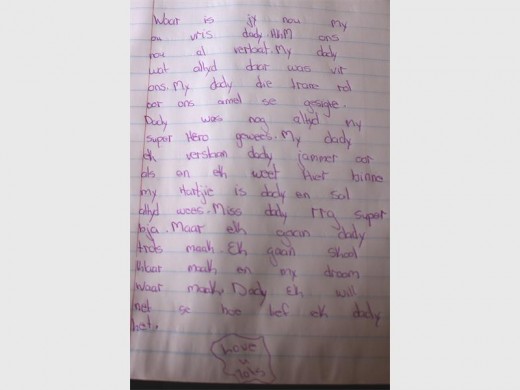 Waar is jy nou my
ou vris dady. Het ons
nou al verlaat. My dady
wat altyd daar was vir
ons. My dady die trane rol
oor ons amel se gesigte.
Dady was nog altyd my
super Hero gewees. My dady
ek verstaan dady jammer oor
als en ek weet hier binne
my Hartjie is dady en sal
altyd wees. Miss dady rtg super
baja. Maar ek gaan dady
trots maak. Ek gaan skool
klaar maak en my droom
waar maak. Dady Ek will
net se hoe lief ek dady
het.
Love
u